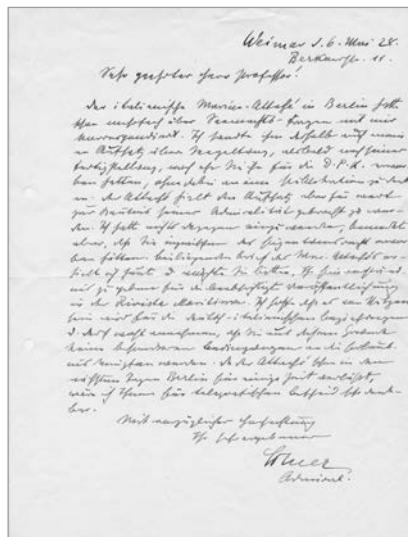 Weimar d. 6. Mai 28.
Berkaerstr. 11.
Sehr geehrter Herr Professor!
Der italienische Marine-Attaché in Berlin hatte
schon mehrfach über Seemachts-Fragen mit mir
korrespondiert. Ich sandte ihm deshalb auch meinen
Aufsatz über Seegeltung, alsbald nach seiner
Fertigstellung, noch ehe Sie ihn für die D.P.K. erwor
ben hatten, ohne dabei an eine Publikation zu denk
en. Der Attaché hielt den Aufsatz aber für wert
zur Kenntnis seiner Admiralität gebracht zu wer
den. Ich hatte nichts dagegen einzuwenden, bemerkte
aber, daß Sie inzwischen das Eigentumsrecht erwor
ben hätten. Beiliegenden Brief des Mar. Attachés er
hielt ich heute u möchte Sie bitten, Ihr Einverständ
nis zu geben für die beabsichtigte Veröffentlichung
in der Rivista Marittima. Ich hoffe daß es von Nutzen
sein wird für die deutsch-italienischen Beziehungen
u darf wohl annehmen, daß Sie aus diesem Grunde
keine besonderen Bedingungen an die Erlaub
nis knüpfen werden. Da der Attaché schon in den
nächsten Tagen Berlin für einige Zeit verläßt,
wäre ich Ihnen für telegraphischen Bescheid sehr dank
bar.
Mit vorzüglicher Hochachtung
Ihr sehr ergebener
Scheer
Admiral.